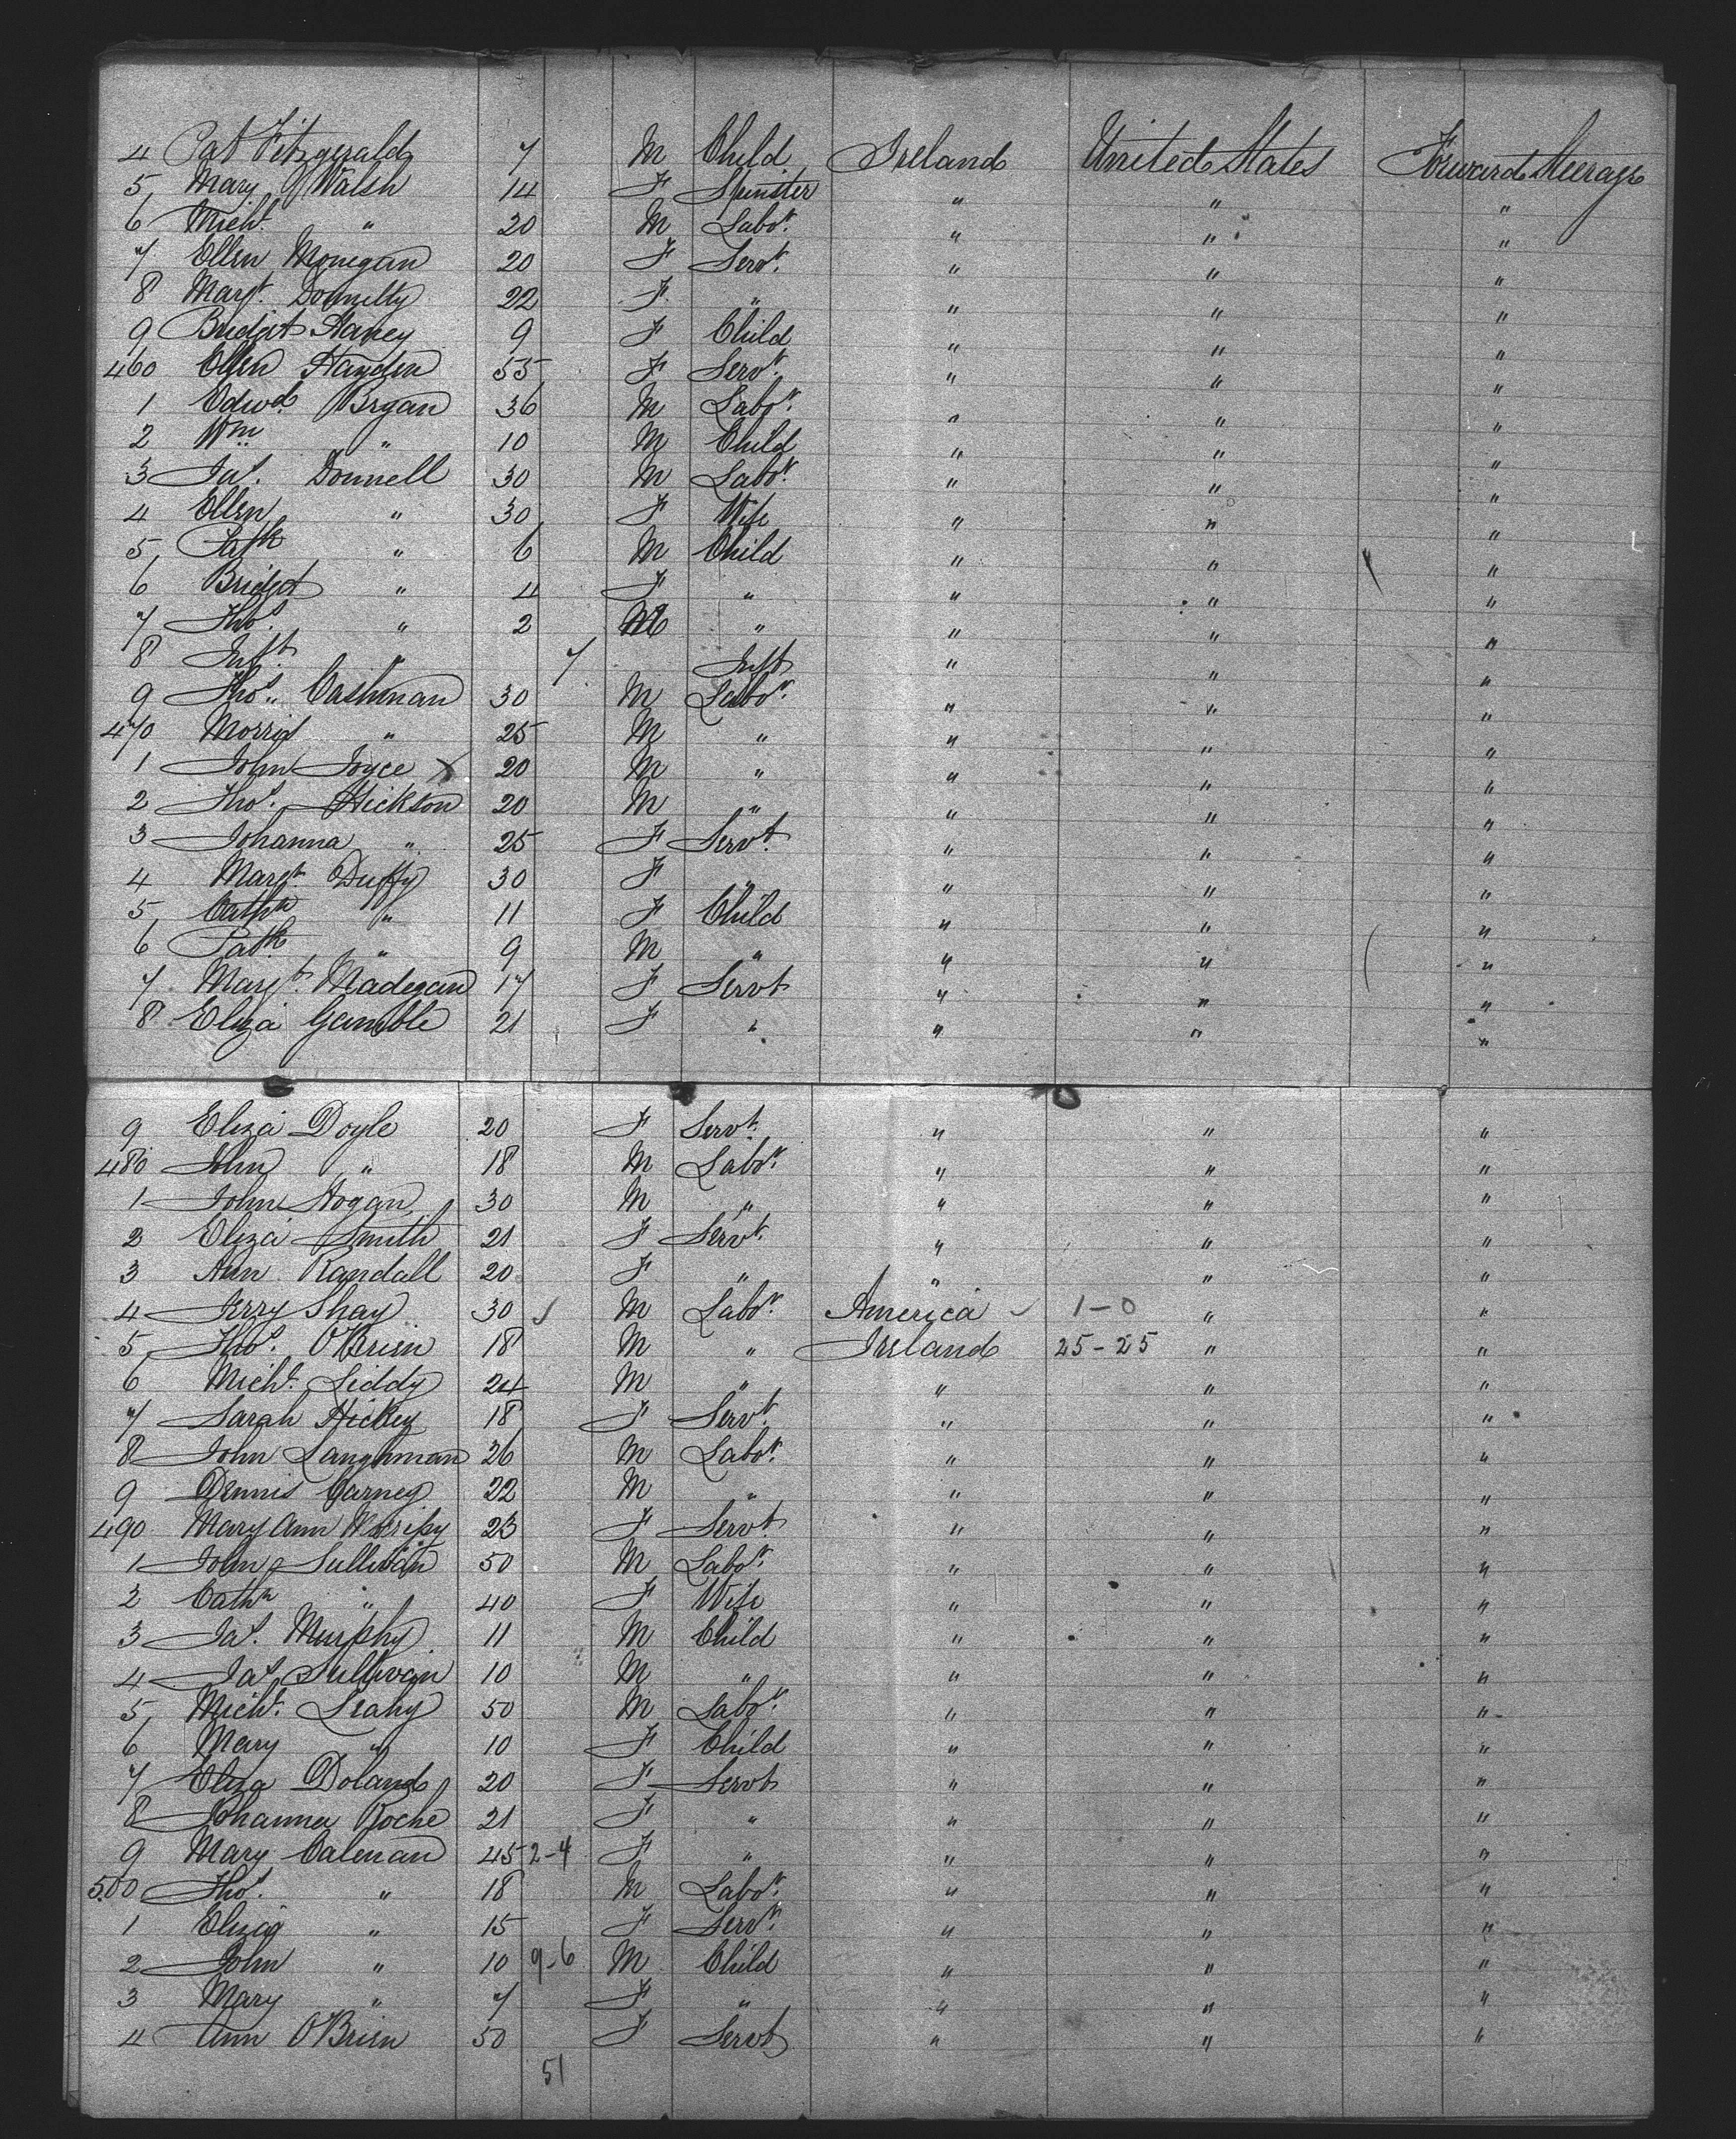 4 Pat Fitzgerald 7 M Child Ireland United States Forward Steerage
5 Mary Walsh 14 F Spinster " " "
6 Michl. " 20 M Labor. " " "
7 Ellen Monegan 20 F Servt. " " "
8 Margt. Donnelly 22 F " " " "
9 Bridget 9 F Child " " "
460 Ellen 55 F Servt. " " "
1 Edwd. Bryan 36 M Labor. " " "
2 Wm " 10 M Child " " "
3 Jas. Donnell 30 M Labor. " " "
4 Ellen " 30 F Wife " " "
5 Patk " 6 M Child " " "
6 Bridget " 4 F " " " "
7 Thos. " 2 M " " " "
8 Inft. " 7 Inft " " "
9 Thos. Cashman 30 M Labor. " " "
470 Morris " 25 M " " " "
1 John Joyce X 20 M " " " "
2 Thos. Hickson 20 M " " " "
3 Johanna " 25 F Servt. " " "
4 Margt. Duffy 30 F " " " "
5 Cathn " 11 F Child " " "
6 Patk. " 9 M " " " "
7 Margt. Madegan 17 F Servt " " "
8 Eliza Gamble 21 F " " " "
9 Eliza Doyle 20 F Servt. " " "
480 John " 18 M Labor. " " "
1 John Hogan 30 M " " " "
2 Eliza Smith 21 F Servt. " " "
3 Ann Randall 20 F " " " "
4 Jerry Shay 30 M Labor. America 1-0 " "
5 Thos. O'Brien 18 M " Ireland 25-25 " "
6 Michl. Liddy 24 M " " " "
7 Sarah Hickey 18 F Servt. " " "
8 John Langhman 26 M Labor. " " "
9 Dennis Carney 22 M " " " "
490 Mary Ann 23 F Servt. " " "
1 John Sullivan 50 M Labor. " " "
2 Cathn " 40 F Wife " " "
3 Jas. Murphy 11 M Child " " "
4 Jas Sullivan 10 M " " " "
5 Michl. Leahy 50 M Labor. " " "
6 Mary " 10 F Child " " "
7 Eliza Doland 20 F Servt " " "
8 Johanna Roche 21 F " " " "
9 Mary Calenan 45 2-4 F " " " "
500 Thos. " 18 M Labor. " " "
1 Eliza " 15 F Servt. " " "
2 John " 10 9-6 M Child " " "
3 Mary " 7 F " " " "
4 Ann O'Brien 50 F Servt " " "
51